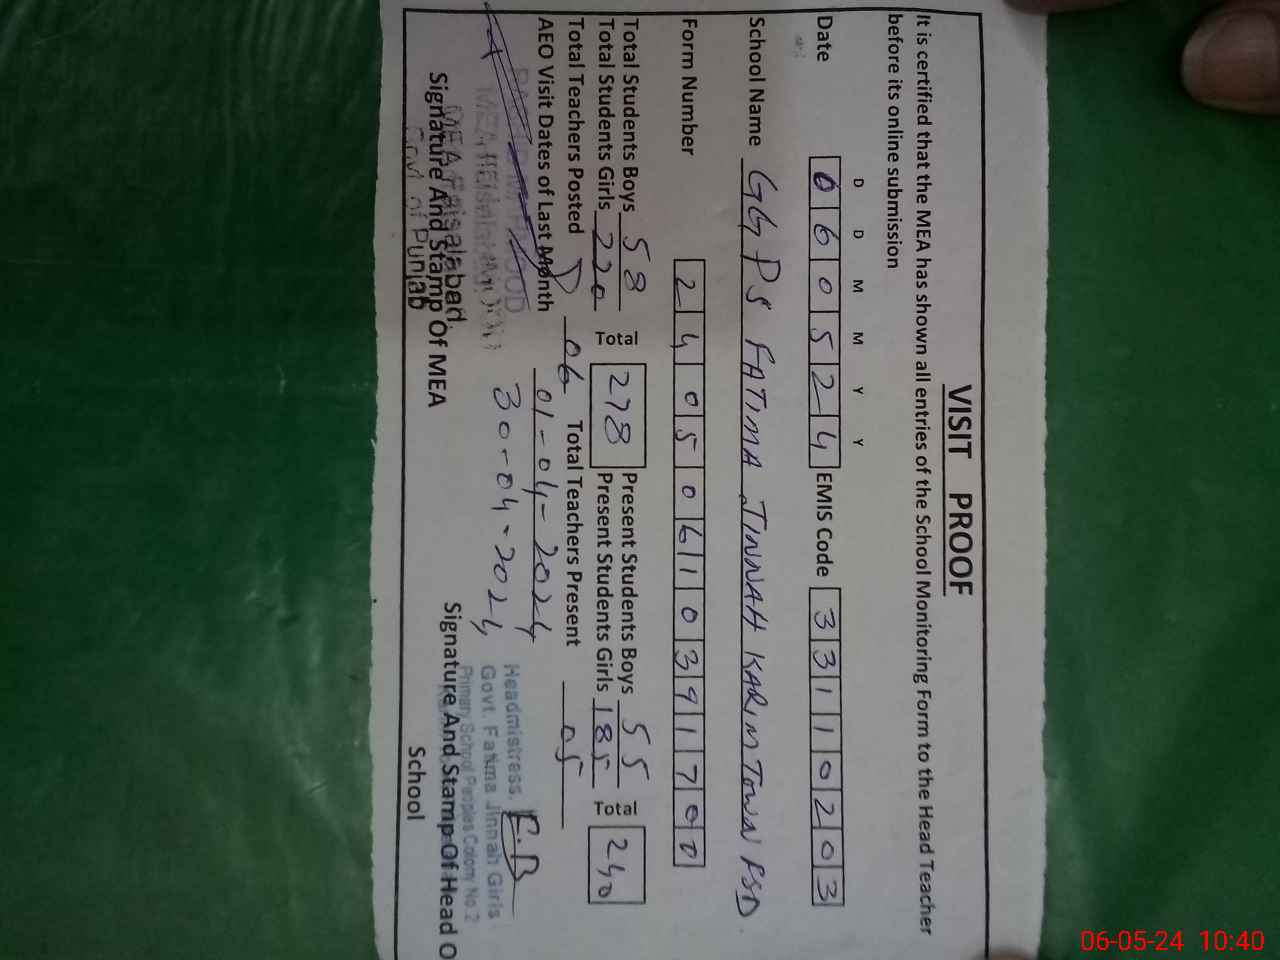 VISIT PROOF
It is certified that the MEA has shown all entries of the School Monitoring Form to the Head Teacher
before its online submission
D D M M Y Y
Date 060524 EMIS Code 33110203
School Name GGPS FATIMA JINNAH KARIM TOWN FSD
Form Number 24050610391700
Total Students Boys 58 Total 278 Present Students Boys 55 Total 240
Total Students Girls 220 Present Students Girls 185
Total Teachers Posted 06 Total Teachers Present 05
AEO Visit Dates of Last Month 01-04-2024
30-04-2024
MEA Faisalabad.
Govt of Punjab
Signature And Stamp Of MEA
Headmistress.
Govt. Fatima Jinnah Girls
Primary School Peoples Colony No.2
Signature And Stamp Of Head O
School
06-05-24 10:40